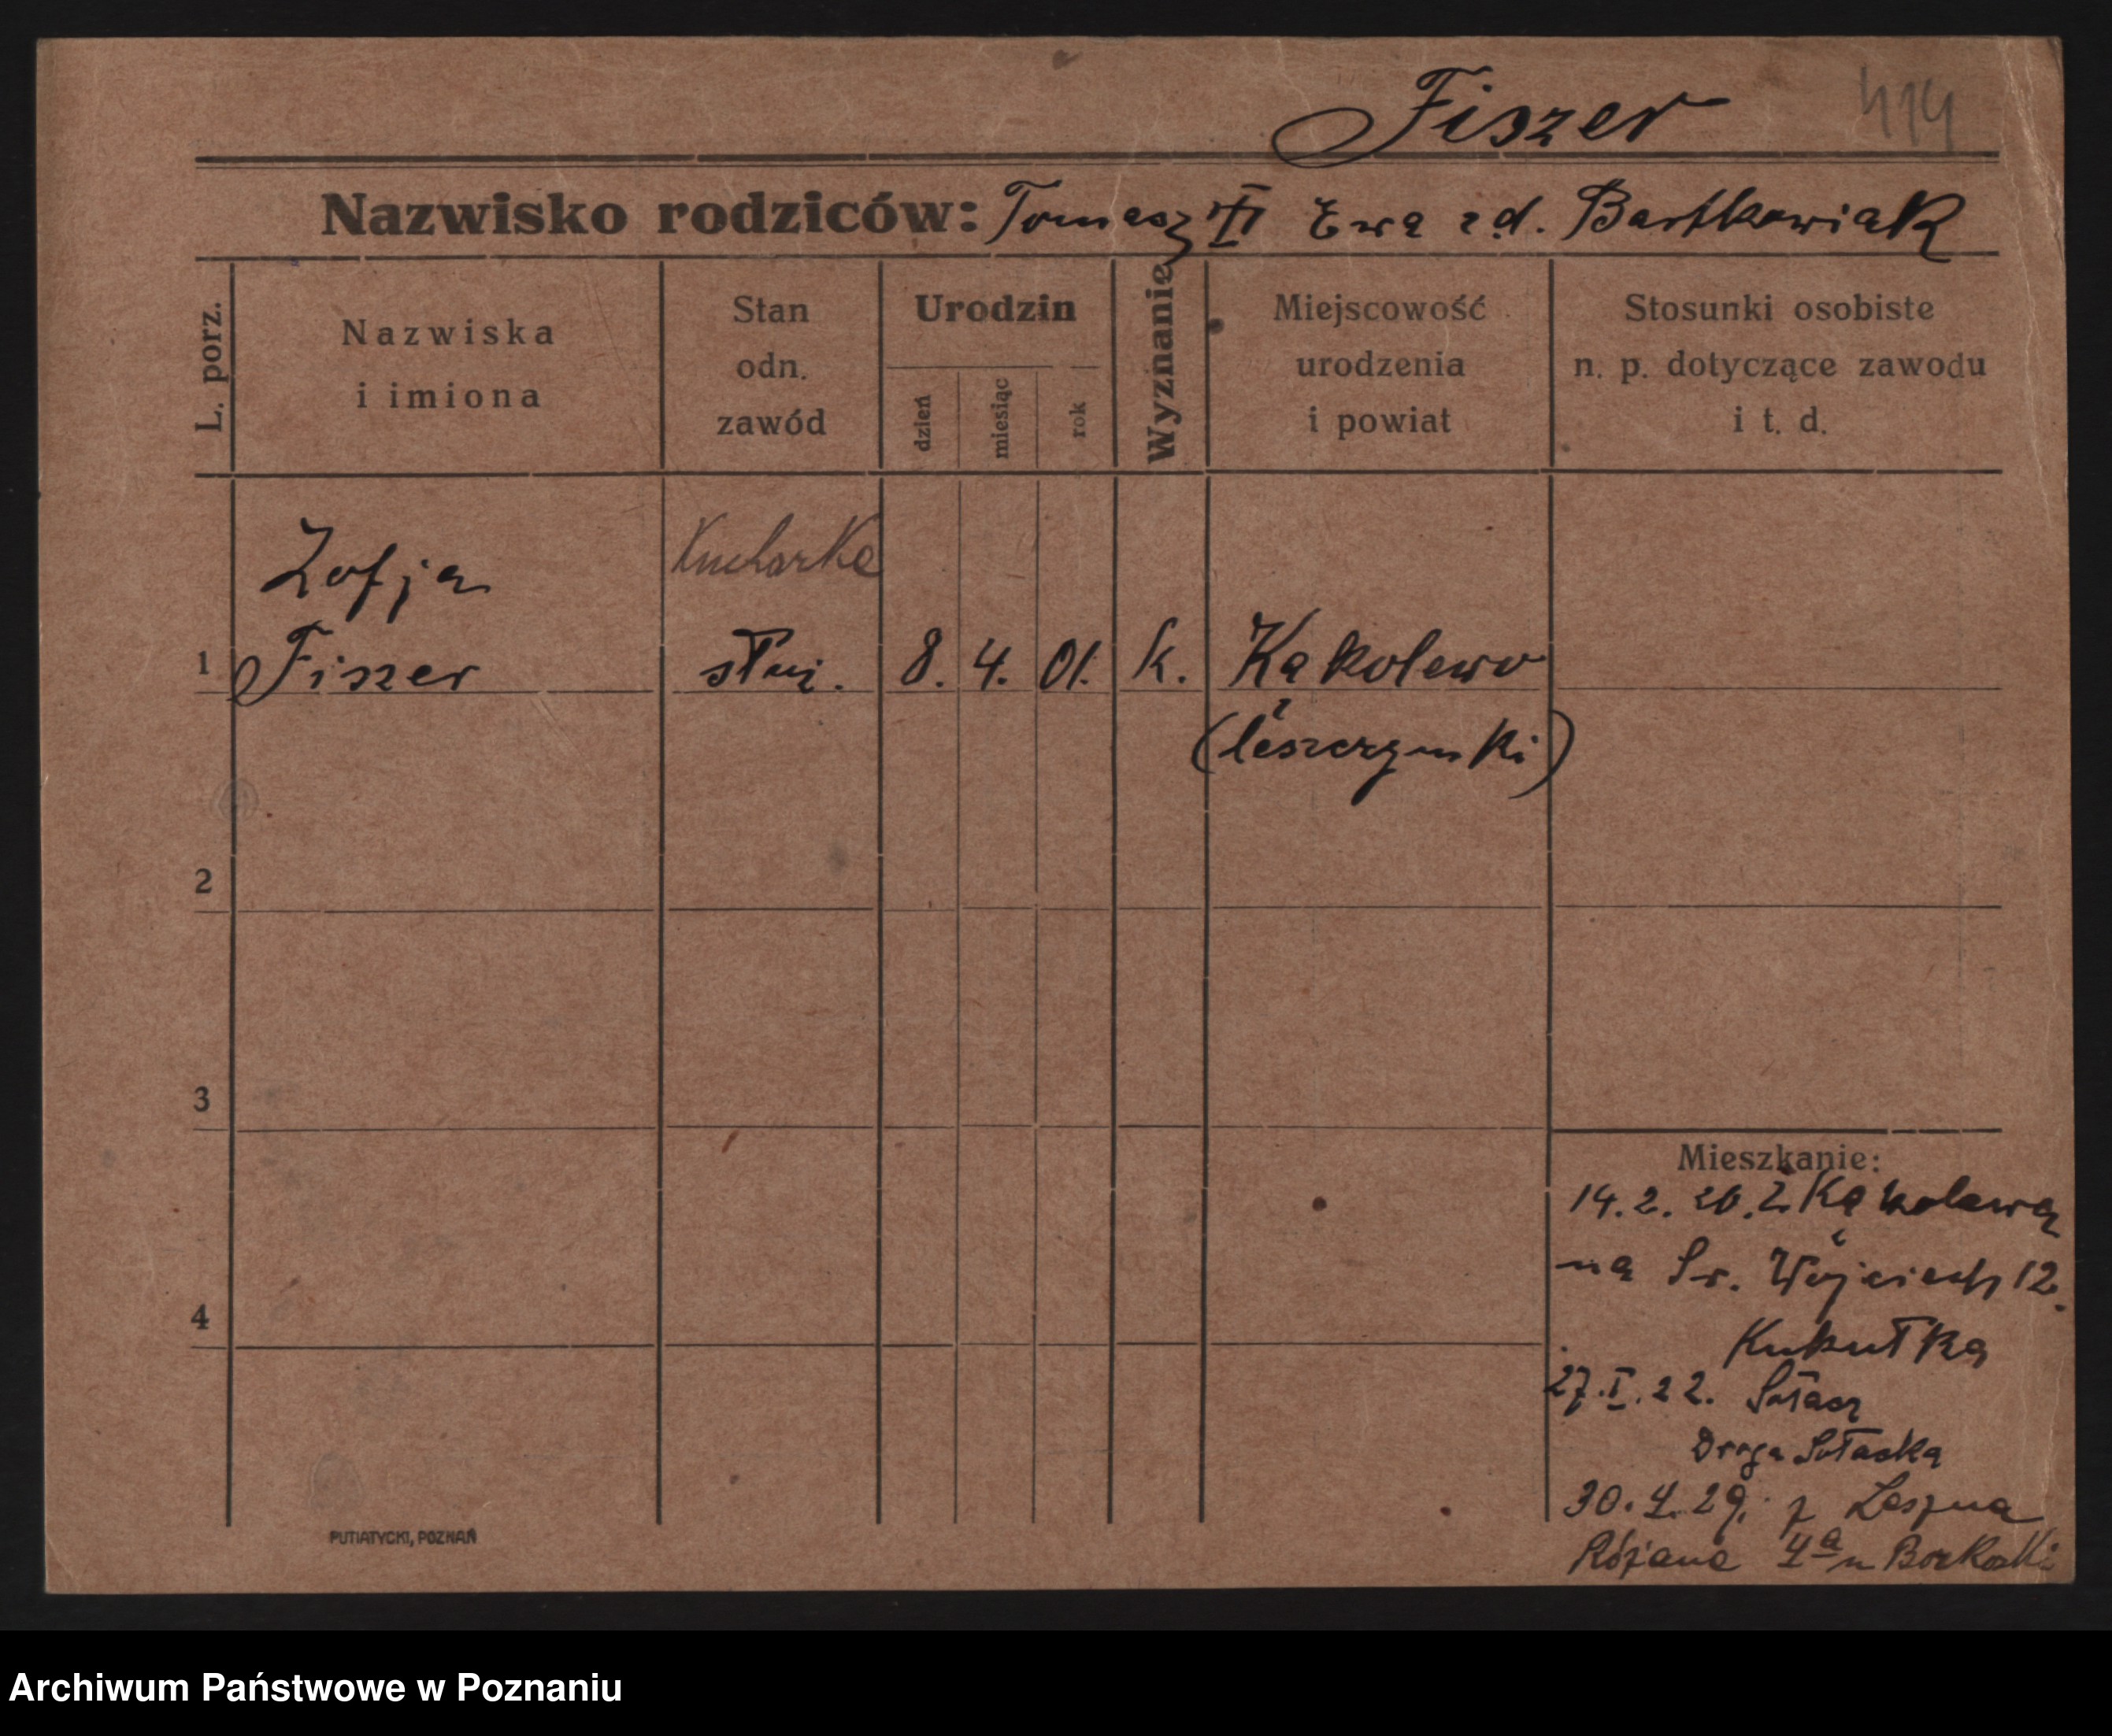 Fiszer 414
Nazwisko rodziców: Tomasz Ewa zd. Bartkowiak
L. porz.
Nazwiska
i imiona
Stan
odn.
zawód
Urodzin
dzień
miesiąc
rok
Wyznanie
Miejscowość
urodzenia
i powiat
Stosunki osobiste
n. p. dotyczące zawodu
i t. d.
Zofja Kucharka
1 Fiszer służ. 8. 4. 01. k. Kąkolewo
(leszczyński)
2
3
4
Mieszkanie:
14.2.20. z Kąkolewa
na Św. Wojciech 12.
Kukułka
27.I.22. Sołacz
Droga Sołacka
30.4.29. z Leszna
Różana 4a u
PUTIATYCKI, POZNAŃ
Archiwum Państwowe w Poznaniu